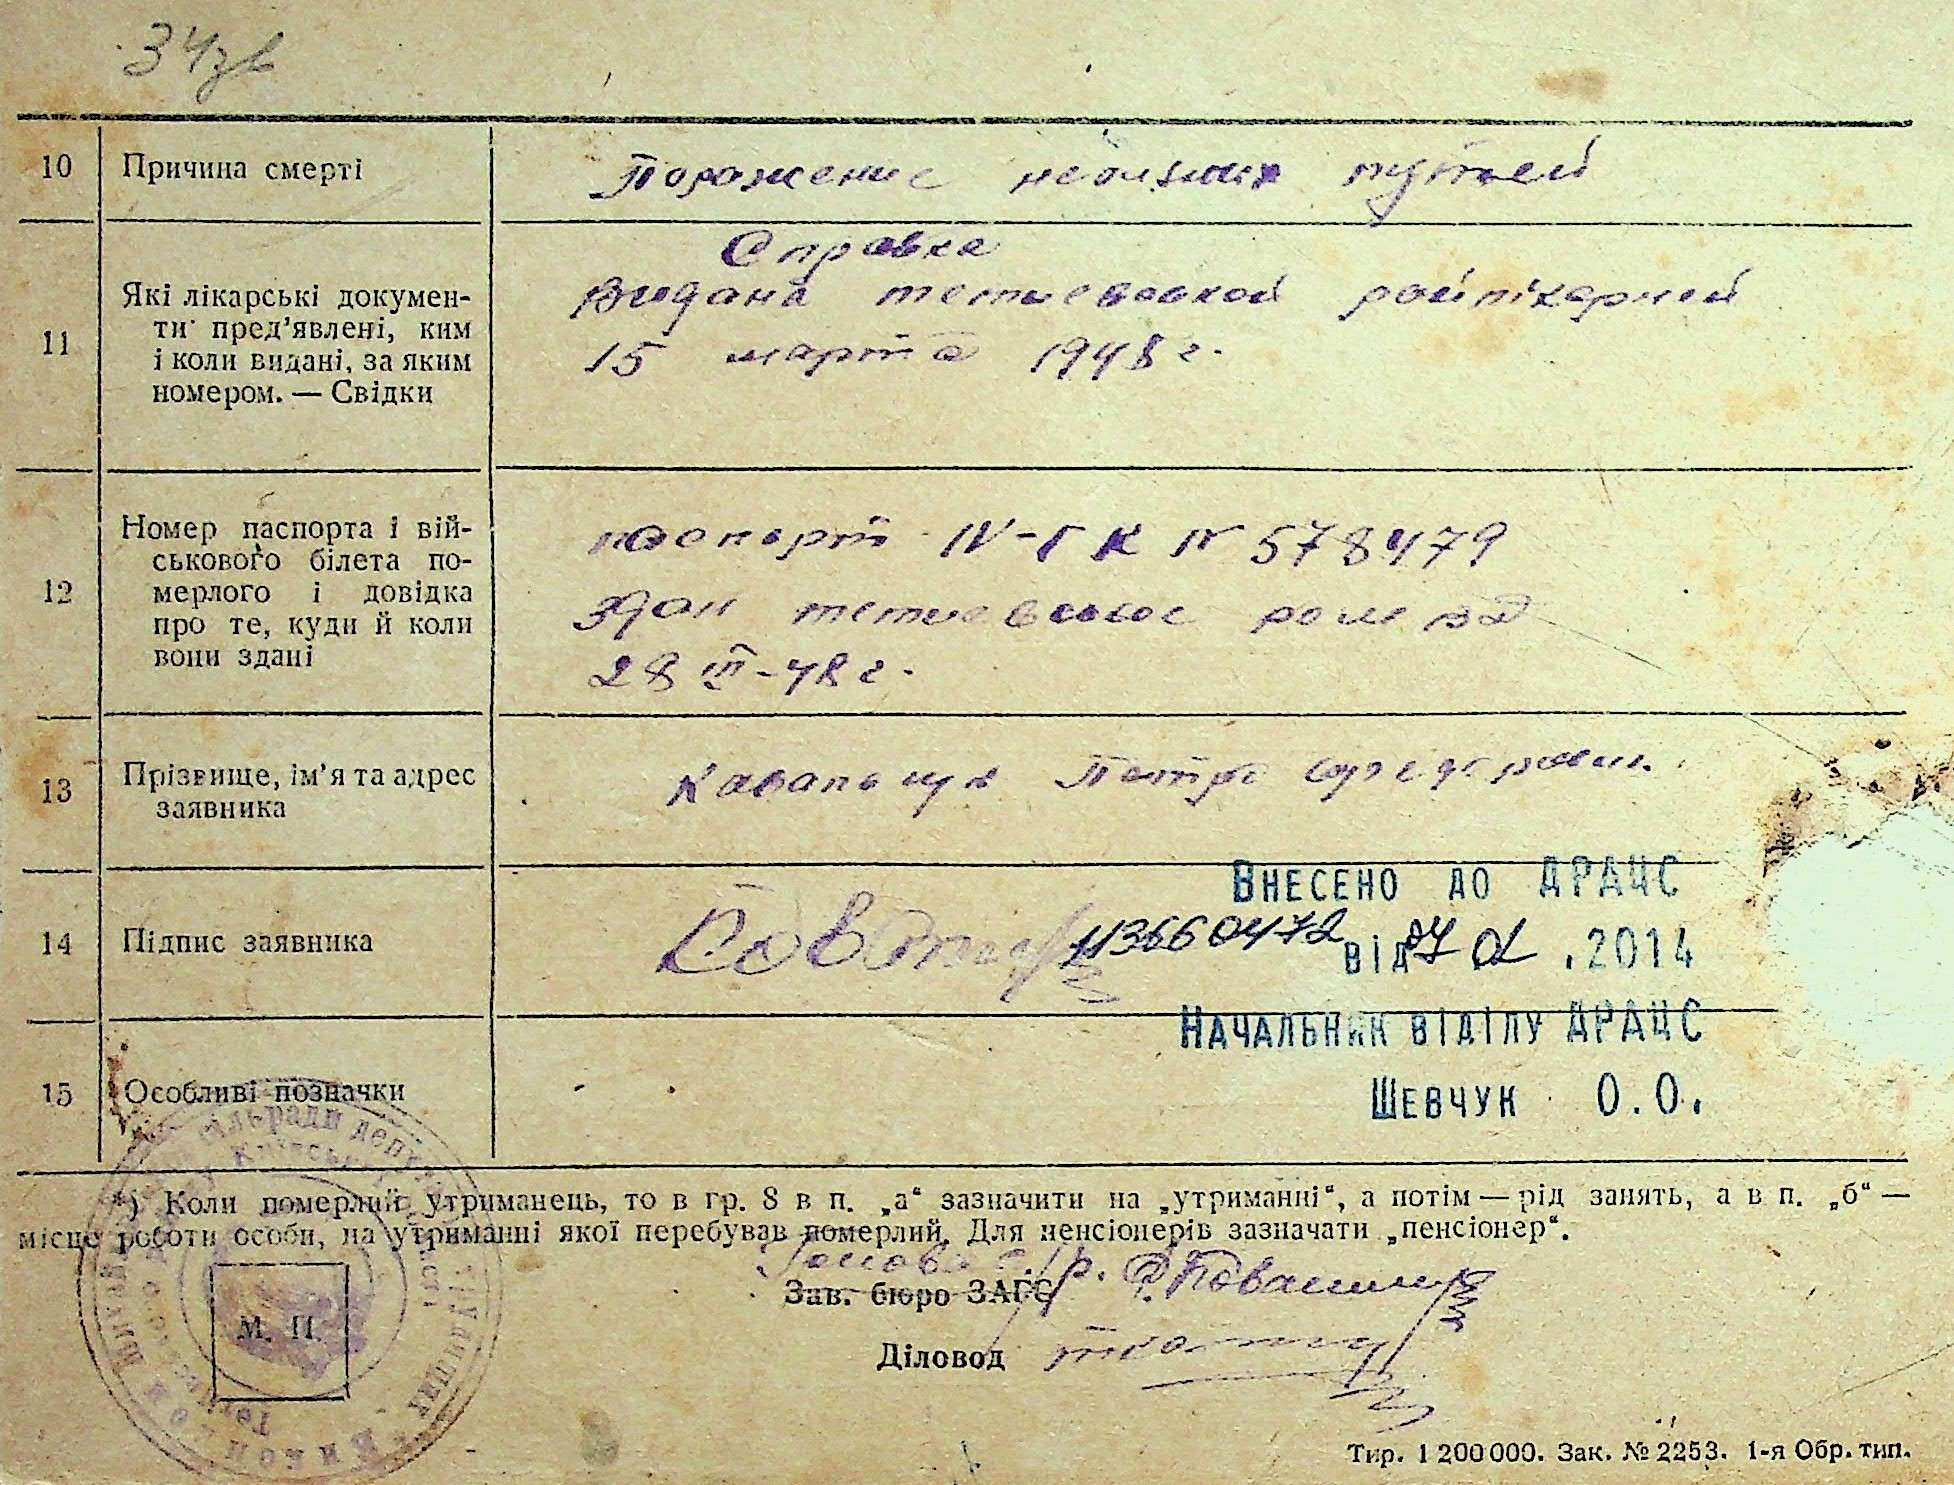 34зв
10 Причина смерті
Поражение путей
11 Які лікарські докумен-
ти пред'явлені, ким
і коли видані, за яким
номером. — Свідки
Справка
Видана тетиевской райлікарней
15 марта 1948 г.
12 Номер паспорта і вій-
ськового білета по-
мерлого і довідка
про те, куди й коли
вони здані
паспорт IV-ГК № 578479
здан тетиевское
28 III-48 г.
13 Прізвище, ім'я та адрес
заявника
Петро
14 Підпис заявника
Внесено до ДРАЦС
113660472 від 2014
Начальник відділу ДРАЦС
Шевчук О.О.
15 Особливі позначки
*) Коли померлий утриманець, то в гр. 8 в п. „а“ зазначити на „утриманні“, а потім — рід занять, а в п. „б“ —
місце роботи особи, на утриманні якої перебував померлий. Для пенсіонерів зазначати „пенсіонер“.
Зав. бюро ЗАГС
М. П.
Діловод
Тир. 1 200 000. Зак. № 2253. 1-я Обр. тип.